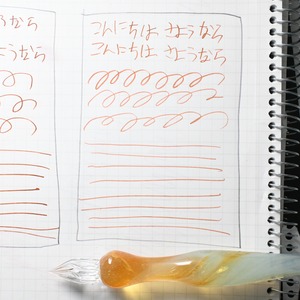 うなら
こんにちは さようなら
ようなら
こんにちは さようなら